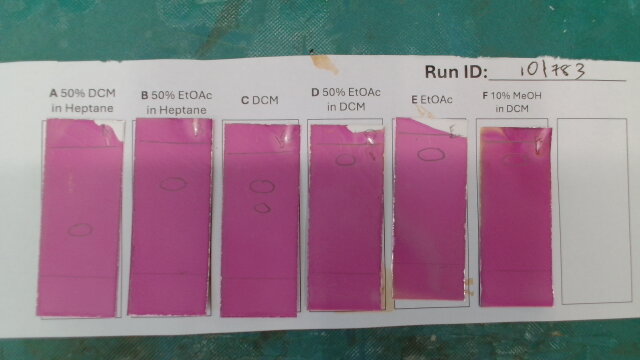 Run ID: 101783
A 50% DCM
in Heptane
B 50% EtOAc
in Heptane
C DCM
D 50% EtOAc
in DCM
E EtOAc
F 10% MeOH
in DCM